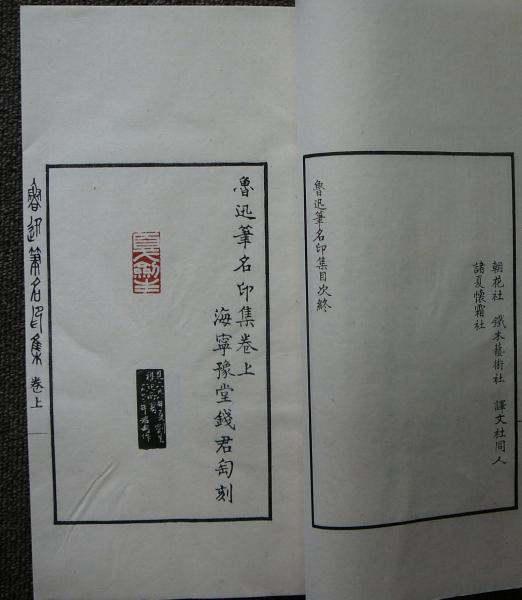 朝花社　鐵木藝術社　譯文社同人
諸夏懷霜社
魯迅筆名印集目次終
魯迅筆名印集卷上
海寧豫堂錢君匋刻
夏劍生
魯迅筆名印集 卷上